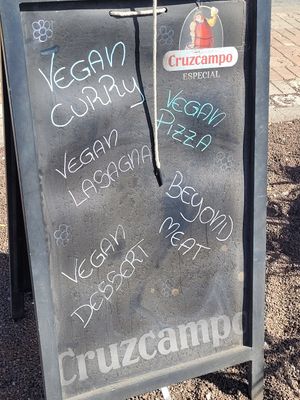 Cruzcampo
ESPECIAL
VEGAN
CURRY
VEGAN
PIZZA
VEGAN
LASAGNA
BEYOND
MEAT
VEGAN
DESSERT
Cruzcampo